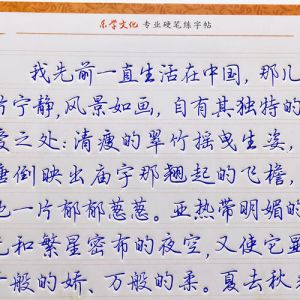 乐学文化 专业硬笔练字帖
我先前一直生活在中国，那儿
片宁静，风景如画，自有其独特的
爱之处：清瘦的翠竹摇曳生姿，
塘倒映出庙宇那翘起的飞檐，
也一片郁郁葱葱。亚热带明媚的
光和繁星密布的夜空，又使它显
千般的娇、万般的柔。夏去秋